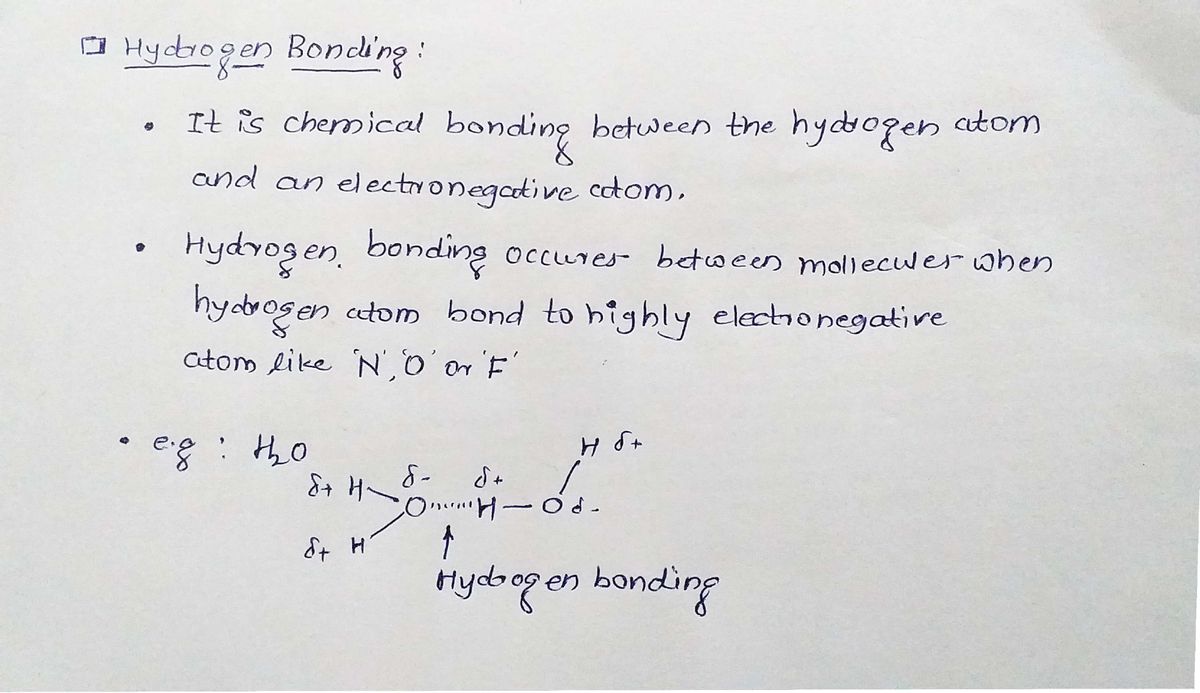 Hydrogen Bonding :
• It is chemical bonding between the hydrogen atom
and an electronegative atom.
• Hydrogen bonding occures between mollecules when
hydrogen atom bond to highly electronegative
atom like 'N', 'O' or 'F'
• e.g : H₂O
H δ+
δ+ H δ- δ+
O H — O δ-
δ+ H ↑
Hydrogen bonding